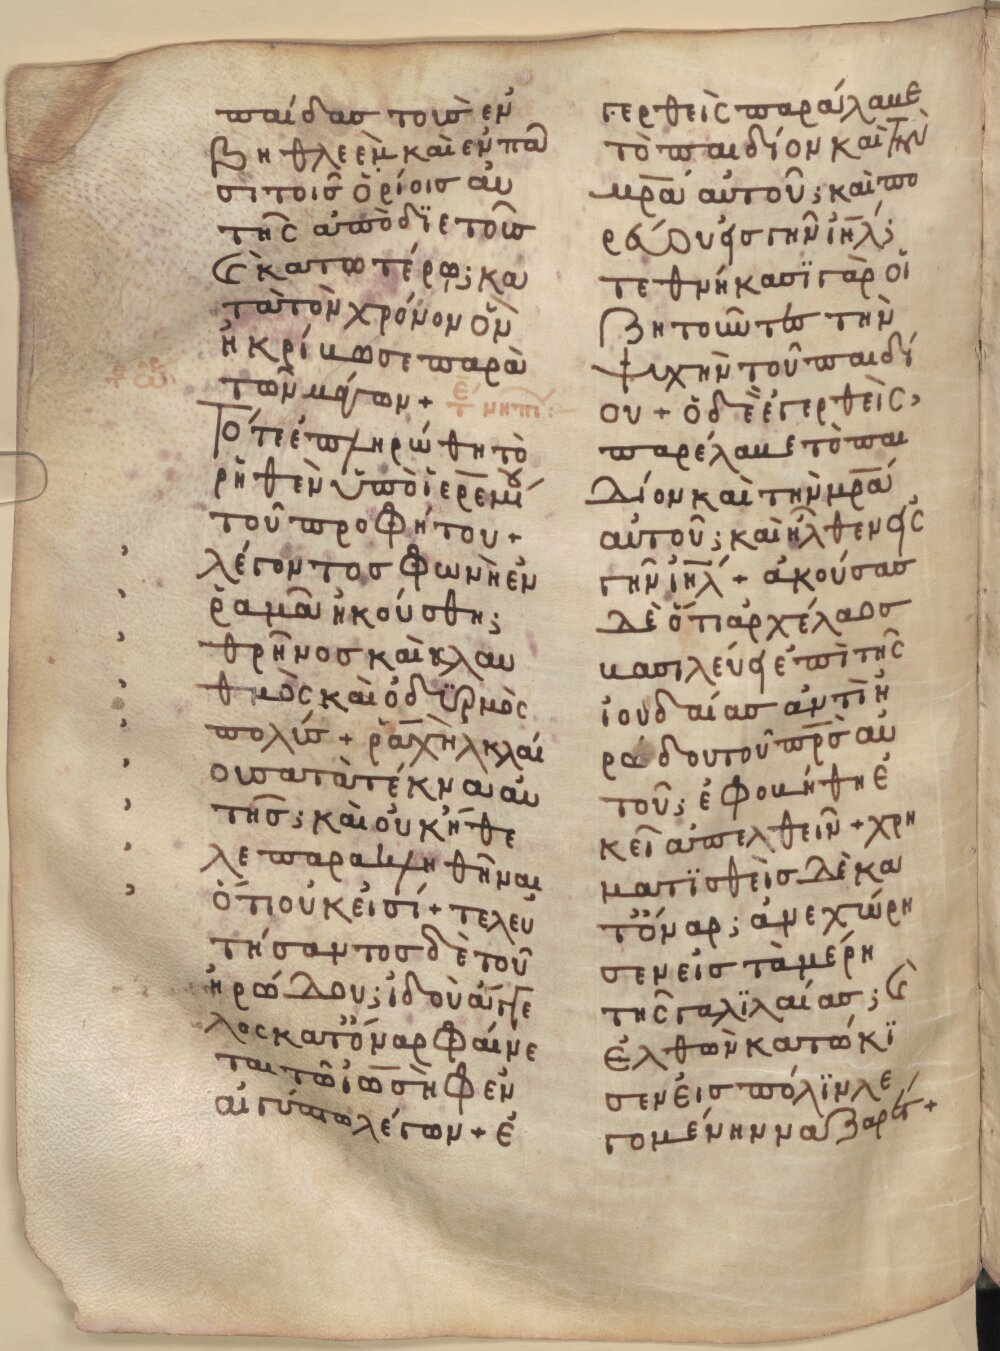 παίδασ τοὺσ ἐν
βηθλεὲμ καὶ ἐν πᾶ
σι τοῖσ ὁρίοισ αὐ
τῆς ἀπὸ διετοῦσ
ἐ κατωτέρω; κα
τὰ τὸν χρόνον ὃν
ἠκρίβωσε παρὰ
τῶν μάγων +
Τότε ἐπληρώθη τὸ
ρηθὲν ὑπὸ ἱερεμίου
τοῦ προφήτου +
λέγοντοσ φωνὴ ἐν
ῥαμᾶ ἠκούσθη;
θρῆνοσ καὶ κλαυ
θμὸς καὶ ὀδϋρμὸς
πολύσ + ῥαχὴλ κλαί
ουσα τὰ τέκνα αὐ
τῆσ; καὶ οὐκ ἤθε
λε παρακληθῆναι
ὅτι οὐκ εἰσί + τελευ
τήσαντοσ δὲ τοῦ
ἡρώδου; ἰδοὺ ἄγγε
λος κατ' ὄναρ φαίνε
ται τῶ ἰωσὴφ ἐν
αἰγύπτω λέγων + ἐ
γερθεὶς παράλαβε
τὸ παιδίον καὶ τὴν
μρ̅α αὐτοῦ; καὶ πο
ρεύου εἰσ γῆν ἰη̅λ;
τεθνήκασϊ γὰρ οἱ
ζητοῦντεσ τὴν
ψυχὴν τοῦ παιδί
ου + ὁ δὲ ἐγερθεὶς,
παρέλαβε τὸ παι
δίον καὶ τὴν μρ̅α
αὐτοῦ; καὶ ἦλθεν εἰς
γῆν ἰη̅λ + ἀκούσασ
δὲ ὅτι ἀρχέλαοσ
βασιλεύει ἐπὶ τῆς
ἰουδαίασ ἀντὶ ἡ
ρώδου τοῦ πρ̅σ αὐ
τοῦ; ἐφοβήθη ἐ
κεῖ ἀπελθεῖν + χρη
ματϊσθεὶσ δὲ κα
τ' ὄναρ; ἀνεχώρη
σεν εἰσ τὰ μέρη
τῆς γαλϊλαίασ; ϗ
ἐλθὼν κατώκϊ
σεν εἰσ πόλϊν λε
γομένην ναζαρέτ +